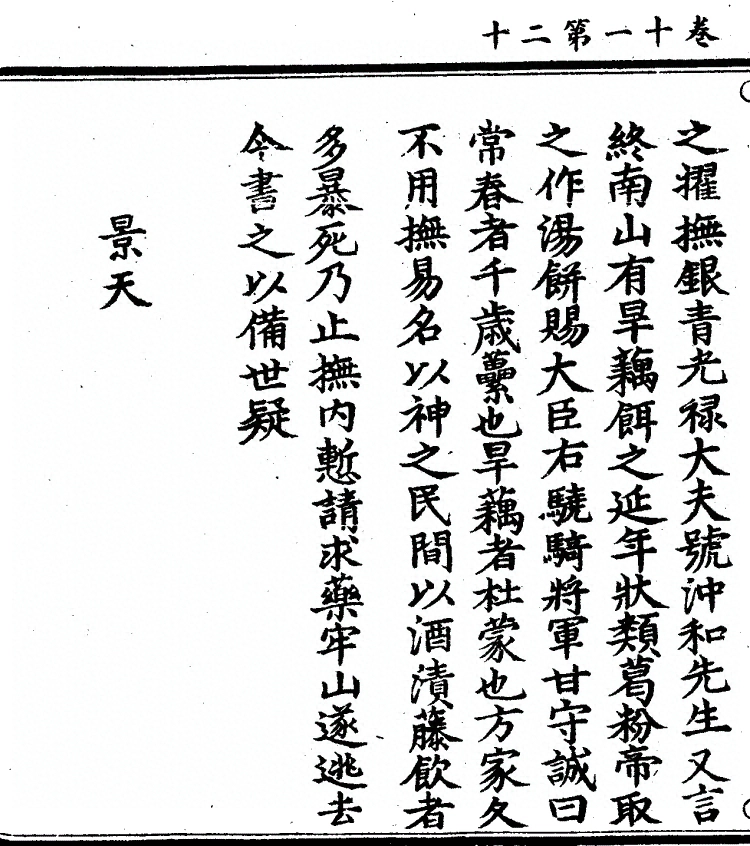 卷十一第二十
之擢撫銀青光禄大夫號沖和先生又言
終南山有旱藕餌之延年狀類葛粉帝取
之作湯餅賜大臣右驍騎將軍甘守誠曰
常春者千歳虆也旱藕者杜蒙也方家久
不用撫易名以神之民間以酒漬藤飲者
多暴死乃止撫内慙請求藥牢山遂逃去
今書之以備世疑
景天